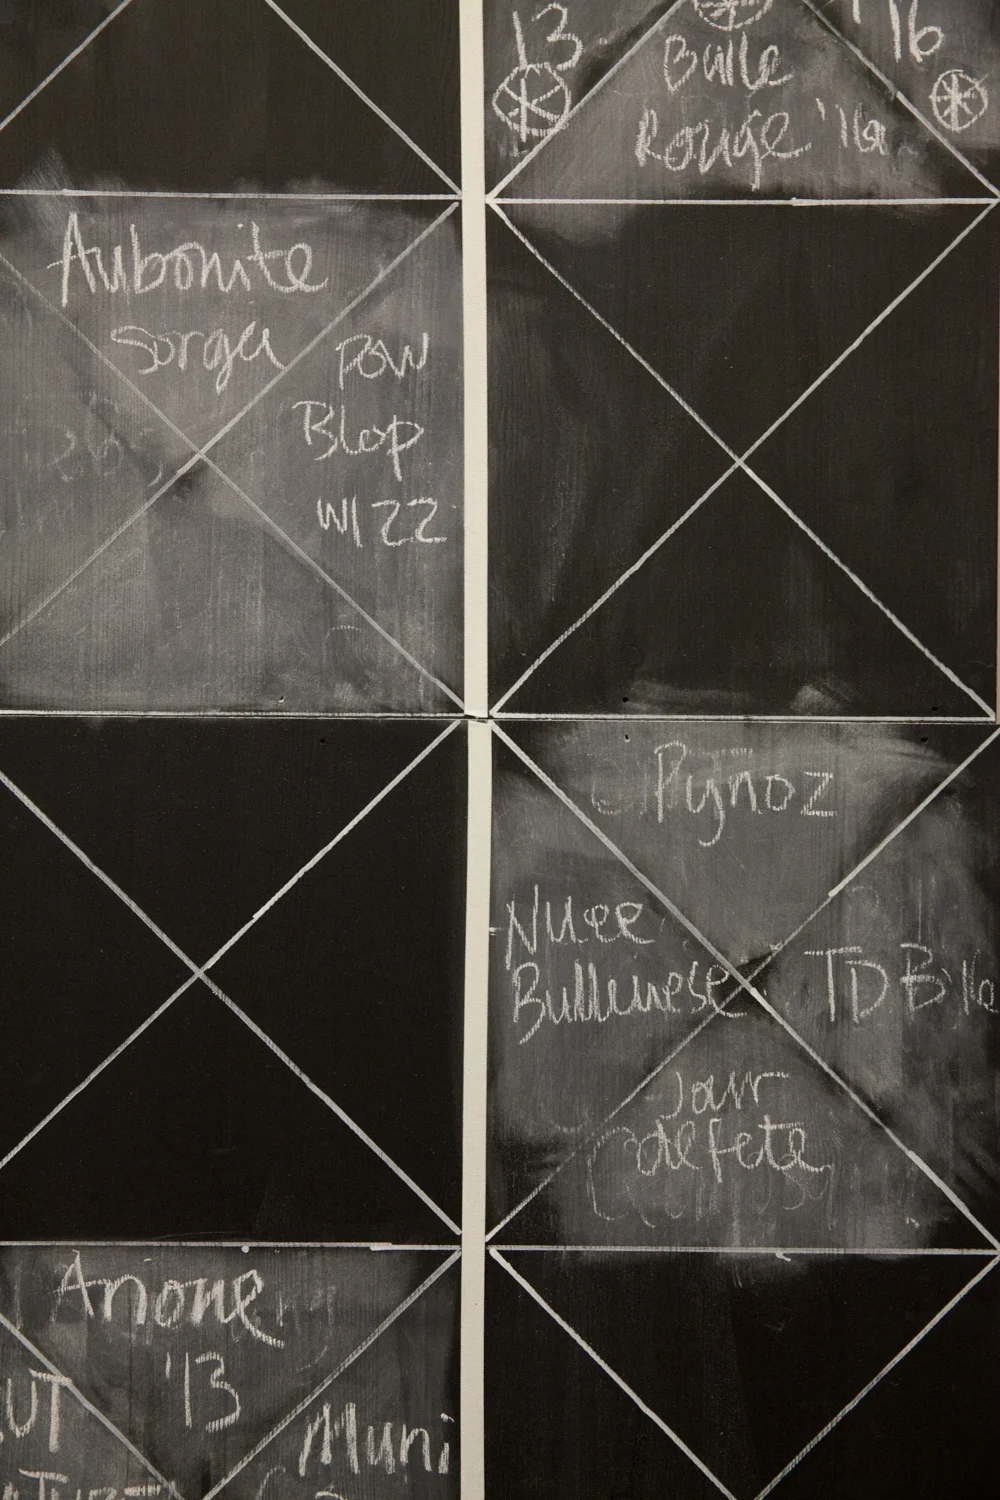 13
16
Bulle
Rouge '16
Aubonite
sorga
POW
Blop
WIZZ
Pynoz
Nuee
Bulleuese
TD B
Jour
de fete
Anone
'13
UT
Muni